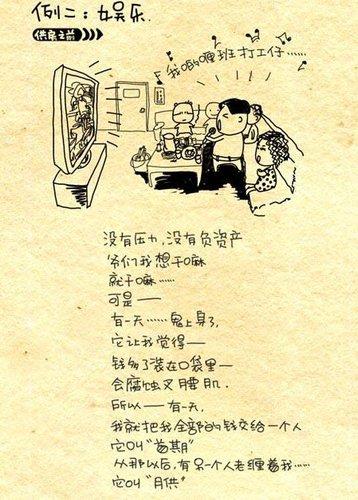 例二：娱乐.
供房之前
我哋呢班打工仔……
没有压力，没有负资产
爷们我想干嘛
就干嘛……
可是——
有一天……鬼上身了，
它让我觉得——
钱多了装在口袋里—
会腐蚀叉腰肌.
所以——有一天，
我就把我全部的钱交给一个人
它叫"首期"
从那以后，有另一个人老缠着我……
它叫"月供"